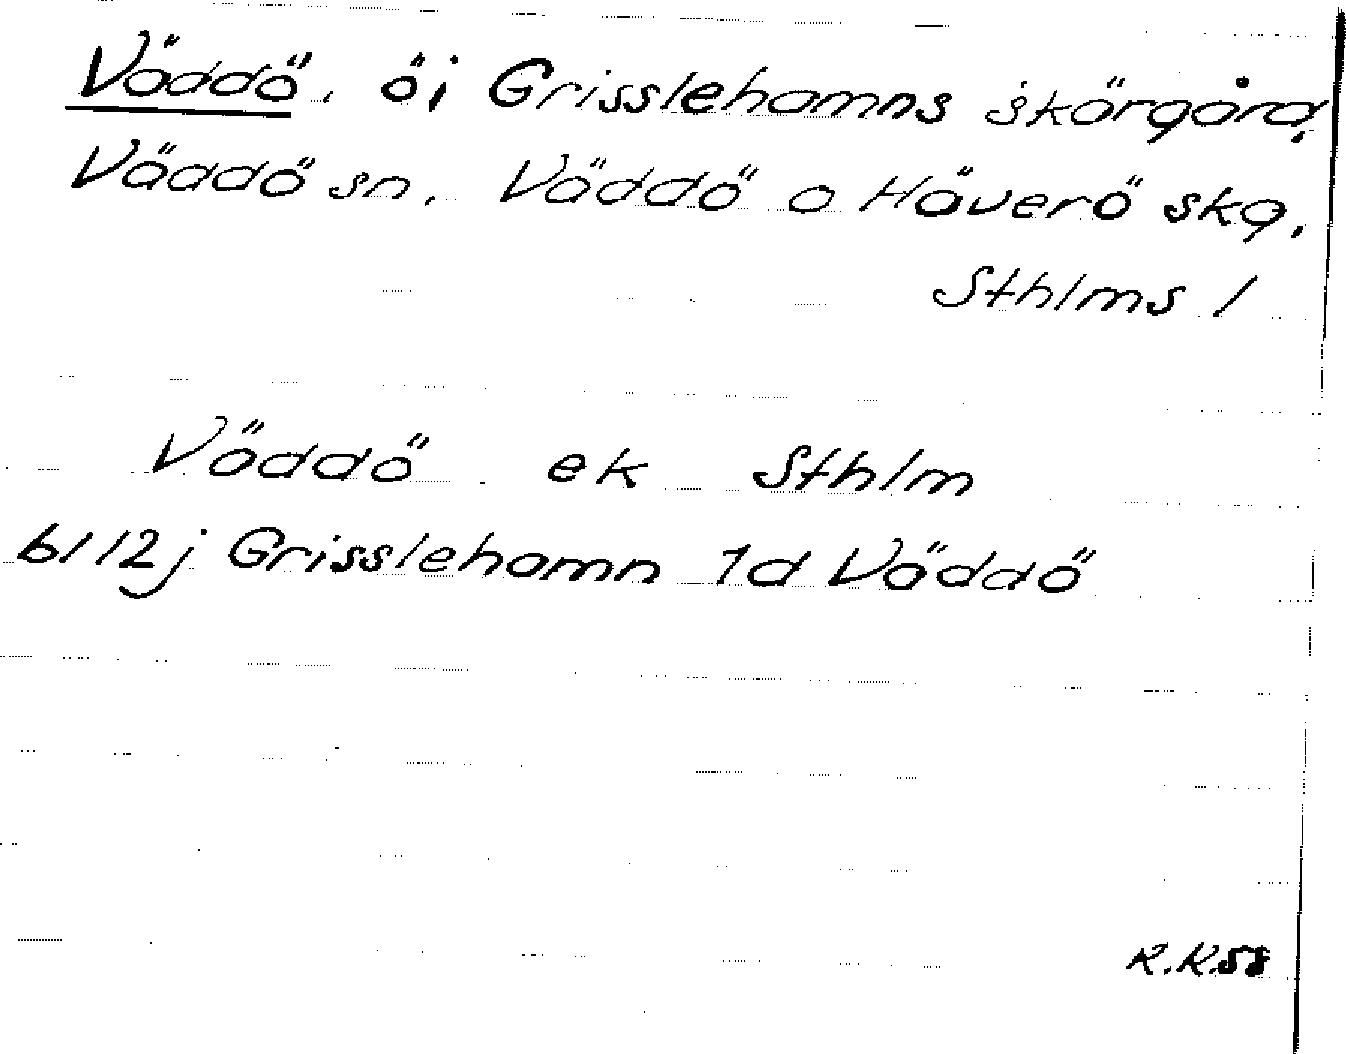 Väddö. ö i Grisslehamns skärgård,
Väddö sn. Väddö o Häverö skg,
Sthlms l
Väddö ek Sthlm
bl 12j Grisslehamn 1d Väddö
R.K.58